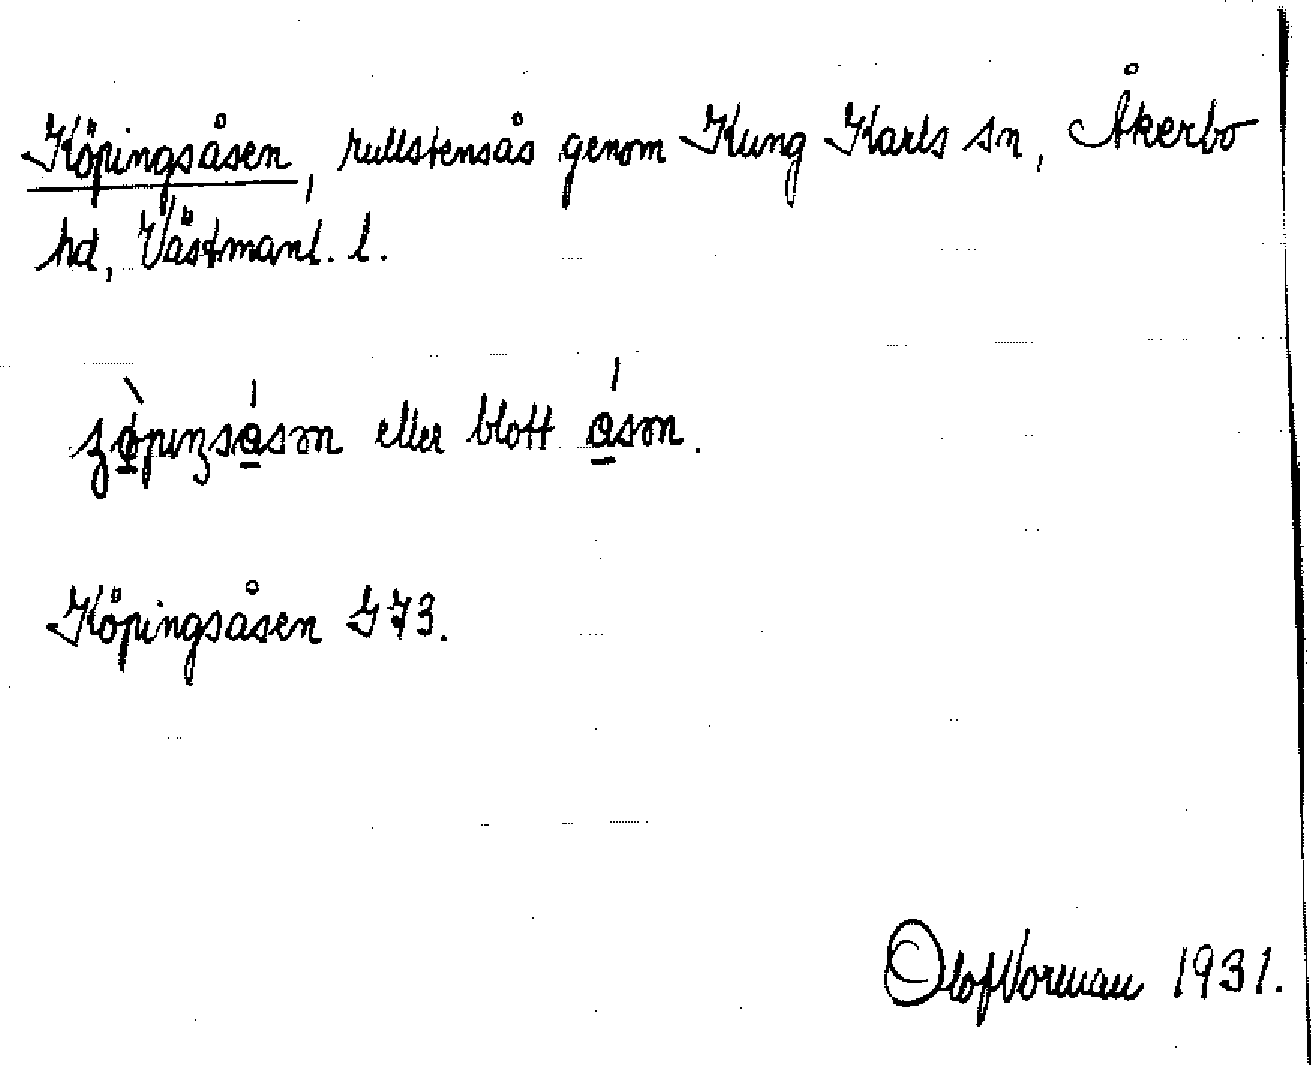 Köpingsåsen, rullstensås genom Kung Karls sn, Åkerbo
hd, Västmanl. l.
eller blott
Köpingsåsen G 73.
Olof Vorman 1931.